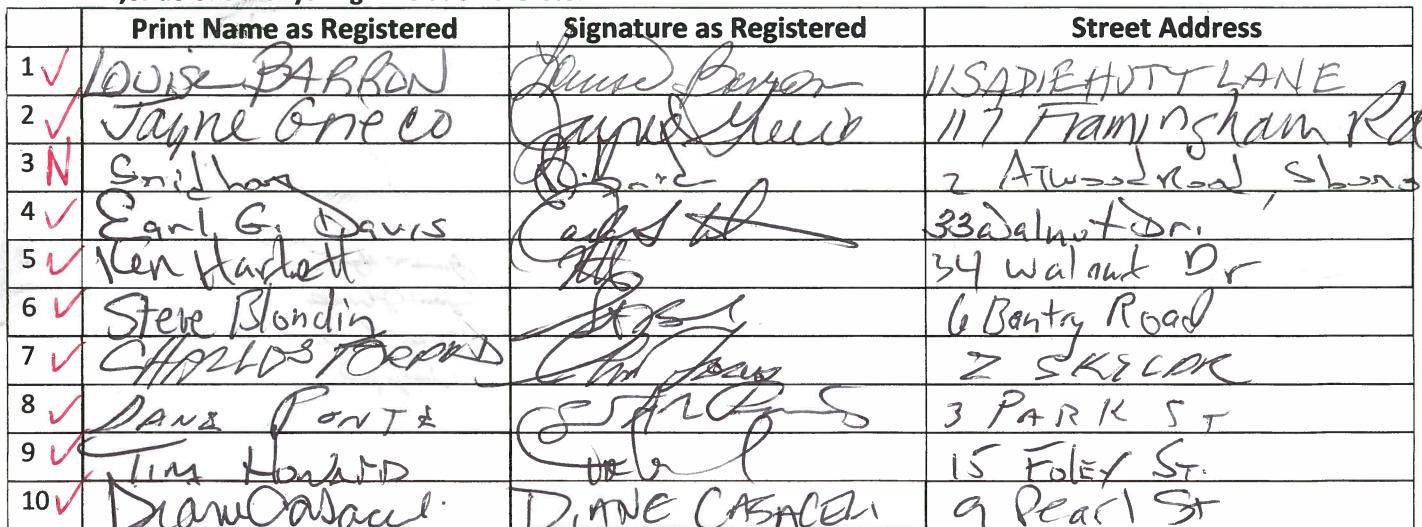 Print Name as Registered Signature as Registered Street Address
1 ✓ LOUISE BARRON Louise Barron 11 SADIE HUTT LANE
2 ✓ Jayne Grieco Jayne Grieco 117 Framingham Rd
3 N Sridhar 2 Atwood Road, Sboro
4 ✓ Earl G. Davis 33 Walnut Dr.
5 ✓ Ken Hartlett 34 Walnut Dr
6 ✓ Steve Blondin 6 Bantry Road
7 ✓ CHARLES 2
8 ✓ DANE PONTE 3 PARK ST
9 ✓ TIM HOWARD 15 FOLEY ST.
10 ✓ Diane Casaceli DIANE CASACELI 9 Pearl St